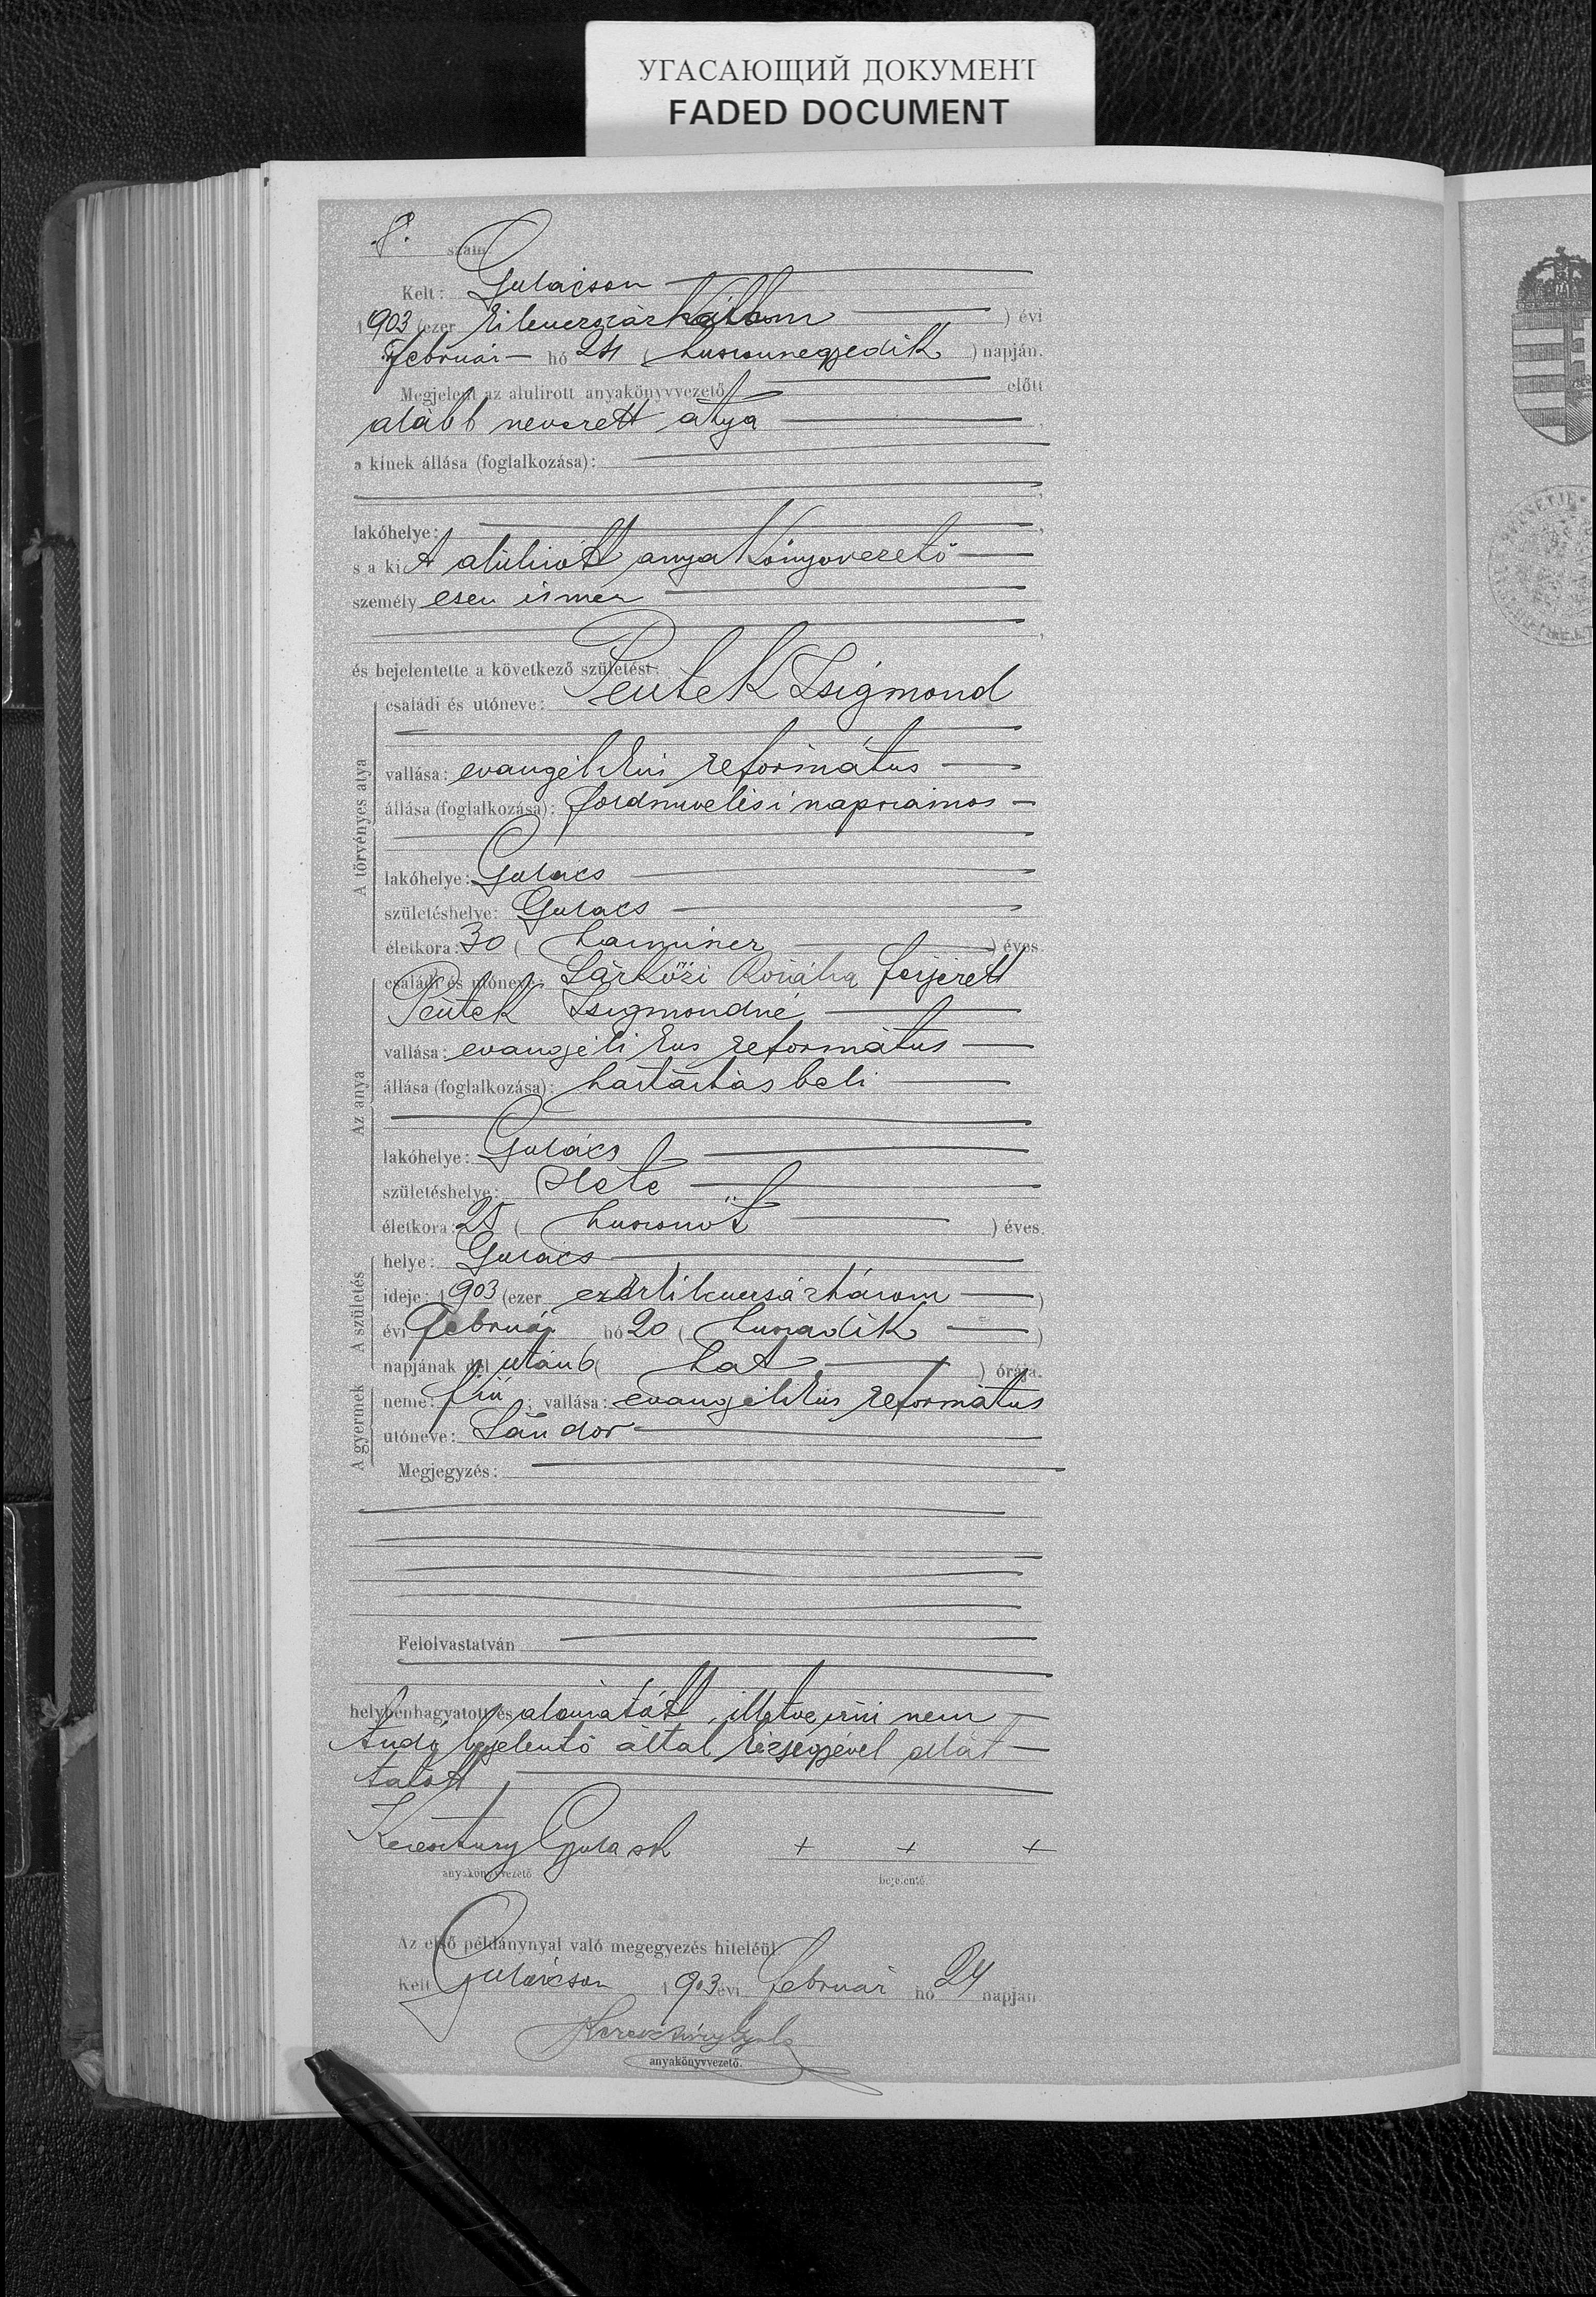 УГАСАЮЩИЙ ДОКУМЕНТ
FADED DOCUMENT
8. szám
Kelt: Gulácson
1903 (ezer kilencszázhárom ) évi
február hó 24 ( huszonnegyedik ) napján.
Megjelent az alulirott anyakönyvvezető előtt
alább nevezett atya
a kinek állása (foglalkozása):
lakóhelye:
s a kit alulirott anyakönyvvezető
személyesen ismer
és bejelentette a következő születést:
A törvényes atya
családi és utóneve: Péntek Zsigmond
vallása: evangélikus református
állása (foglalkozása): földmuvelési napszámos
lakóhelye: Gulács
születéshelye: Gulács
életkora: 30 ( harmincz ) éves.
Az anya
családi és utóneve: Sárközi Rozália férjezett
Péntek Zsigmondné
vallása: evangélikus református
állása (foglalkozása): háztartásbeli
lakóhelye: Gulács
születéshelye: Hete
életkora: 25 ( huszonöt ) éves.
A születés
helye: Gulács
ideje: 1903 (ezer ezerkilenczszázhárom )
évi február hó 20 ( huszadik )
napjának dél után 6 ( hat ) órája.
A gyermek
neme: fiú ; vallása: evangélikus református
utóneve: Sándor
Megjegyzés:
Felolvastatván
helybenhagyatott és aláiratott, illetve irni nem
tudó bejelentő által kézjegyével ellát
tatott
Keresztury Gyula sk + + +
anyakönyvvezető bejelentő.
Az első példánynyal való megegyezés hiteléül
Kelt Gulácson 1903 évi február hó 24 napján
Keresztury Gyula
anyakönyvvezető.